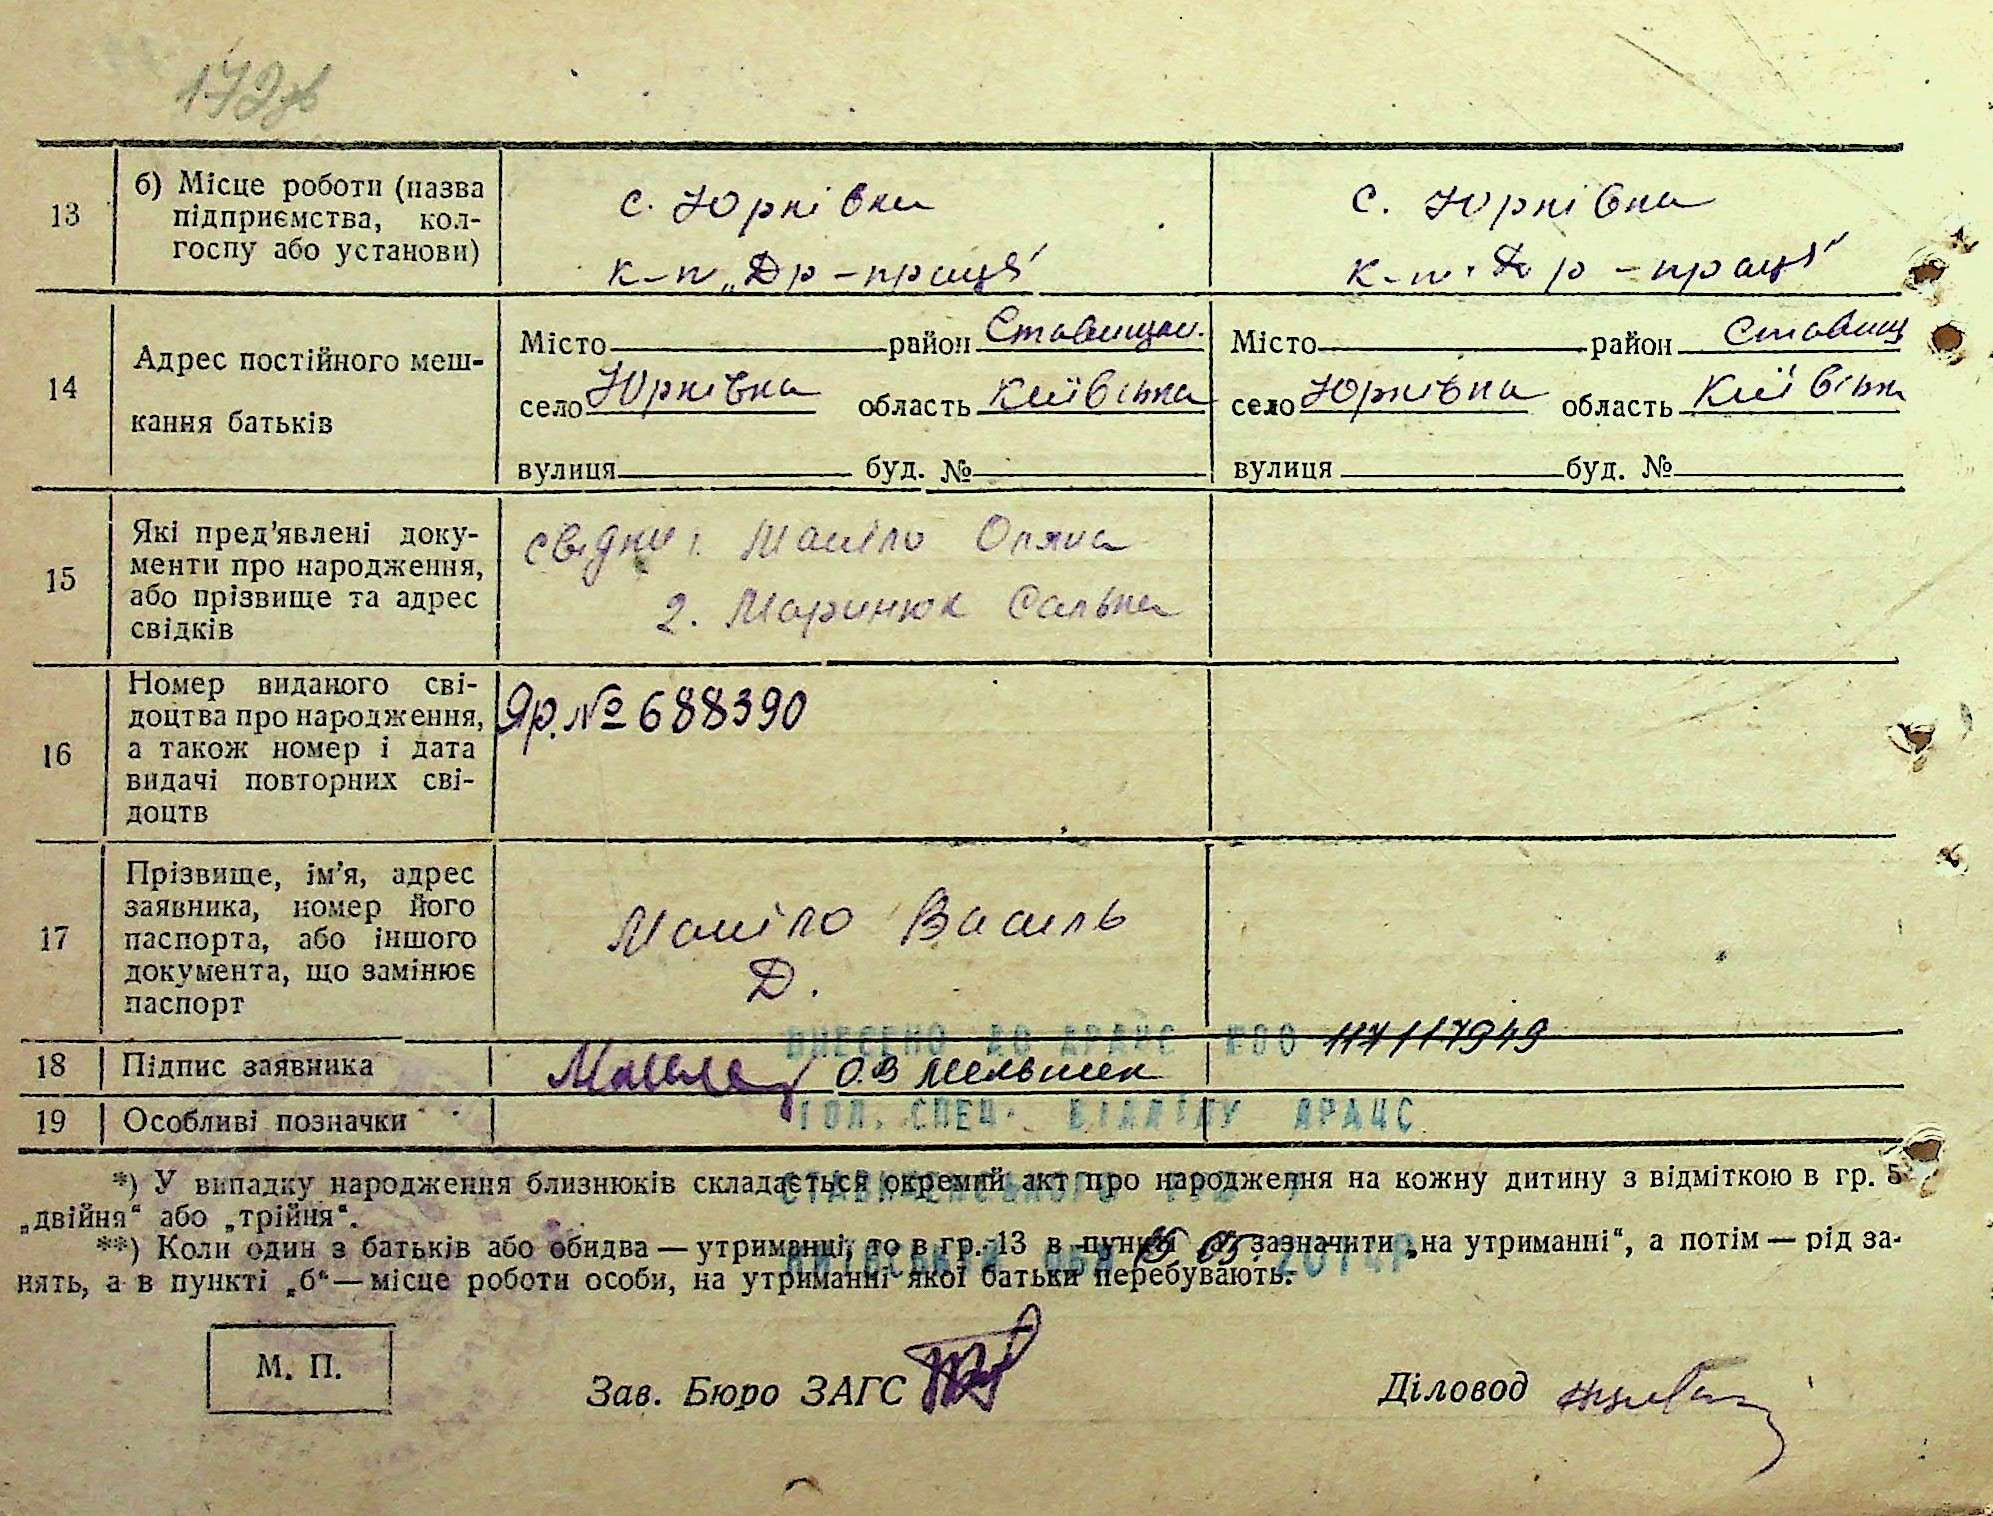 172
13
б) Місце роботи (назва
підприємства, кол-
госпу або установи)
с. Юрківка
к-п „Др-праця"
с. Юрківка
к-п „Др-праця"
14
Адрес постійного меш-
кання батьків
Місто район Ставищан.
село Юрківка область Київська
вулиця буд. №
Місто район Ставищ
село Юрківка область Київськ
вулиця буд. №
15
Які пред'явлені доку-
менти про народження,
або прізвище та адрес
свідків
Свідки 1. Маніло Оляна
2. Маринюк Салька
16
Номер виданого сві-
доцтва про народження,
а також номер і дата
видачі повторних сві-
доцтв
Яр. № 688390
17
Прізвище, ім'я, адрес
заявника, номер його
паспорта, або іншого
документа, що замінює
паспорт
Маніло Василь
Д.
ВНЕСЕНО ДО ДРАЦС
18
Підпис заявника
О.В Мельник
ГОЛ. СПЕЦ. ВІДДІЛУ ДРАЦС
19
Особливі позначки
*) У випадку народження близнюків складається окремий акт про народження на кожну дитину з відміткою в гр. 5
„двійня“ або „трійня“.
**) Коли один з батьків або обидва — утриманці, то в гр. 13 в пункті зазначити „на утриманні“, а потім — рід за-
нять, а в пункті „б“ — місце роботи особи, на утриманні якої батьки перебувають.
05. 2014р
М. П.
Зав. Бюро ЗАГС
Діловод